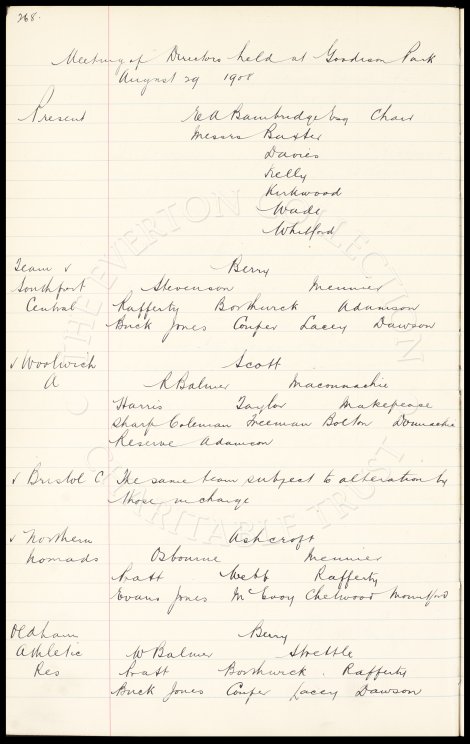 268.
Meeting of Directors held at Goodison Park
August 29 1908
Present E A Bainbridge Esq Chair
Messrs Baxter
Davies
Kelly
Kirkwood
Wade
Whitford
Team v Berry
Southport Stevenson Meunier
Central Rafferty Borthwick Adamson
Buck Jones Couper Lacey Dawson
v Woolwich Scott
A R Balmer Maconnachie
Harris Taylor Makepeace
Sharp Coleman Freeman Bolton Donnachie
Reserve Adamson
v Bristol C The same team subject to alteration by
those in charge
v Northern Ashcroft
Nomads Osbourne Meunier
Pratt Webb Rafferty
Evans Jones McEvoy Chetwood Mountford
Oldham Berry
Athletic W Balmer Strettle
Res Pratt Borthwick Rafferty
Buck Jones Couper Lacey Dawson
THE EVERTON COLLECTION
CHARITABLE TRUST